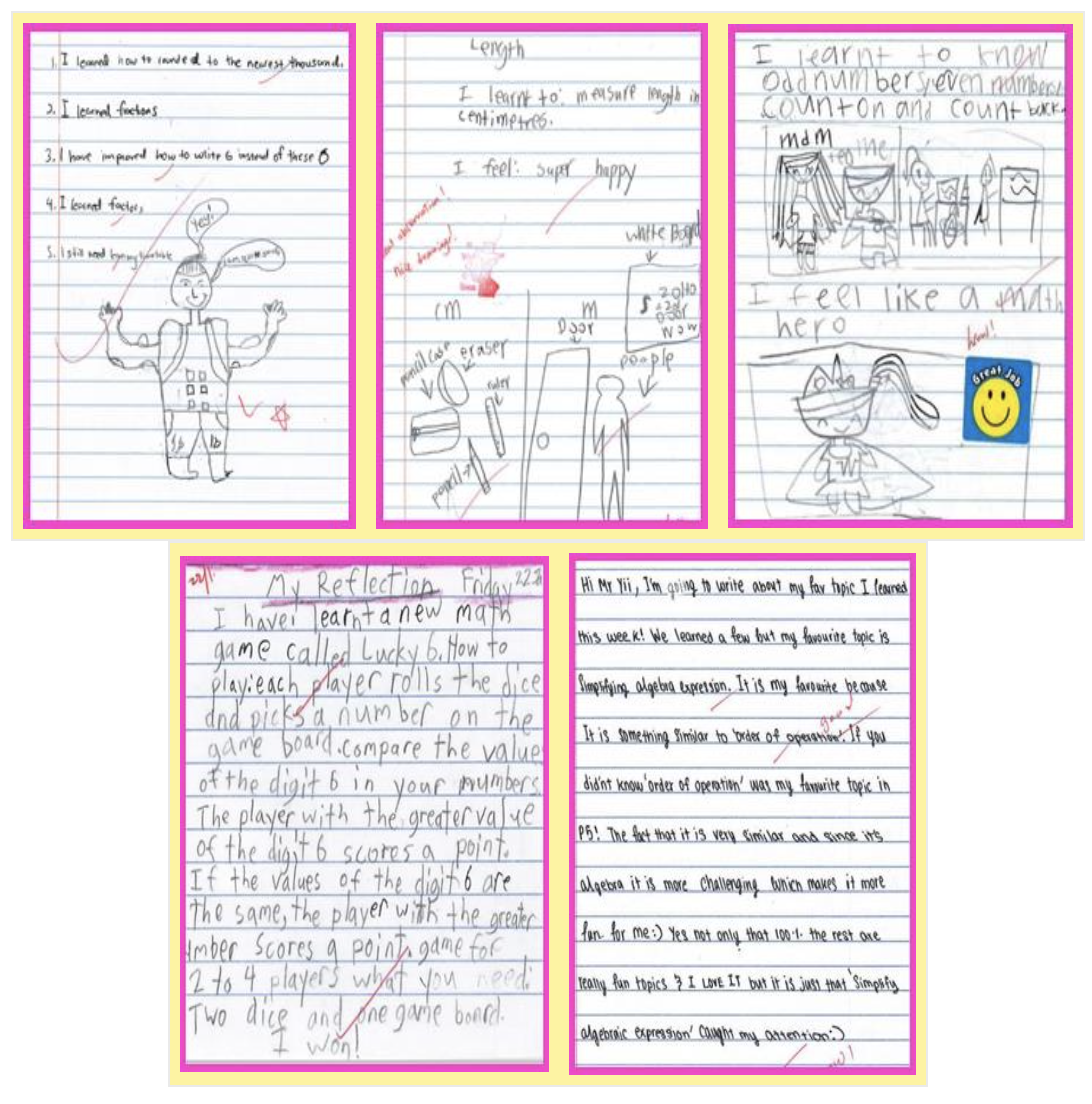 1. I learned how to rounded to the newest thousand.
2. I learned factions
3. I have improved how to write 6 instead of these 6
4. I learned factor,
5. I still need
Yes!
Length
I learnt to: measure length in
centimetres.
I feel: super happy
Nice drawing!
white Board
cm
m
Door
people
pencil case
eraser
ruler
I learnt to know
odd numbers, even numbers,
count on and count back
mdm
me
I feel like a math
hero
Wow!
Great Job
22/1
My Reflection Friday
I have learnt a new math
game called Lucky 6. How to
play: each player rolls the dice
and picks a number on the
game board. compare the value
of the digit 6 in your numbers.
The player with the greater value
of the digit 6 scores a point.
If the values of the digit 6 are
the same, the player with the greater
umber scores a point. game for
2 to 4 players what you need:
Two dice and one game board.
I won!
Hi Mr Yii, I'm going to write about my fav topic I learned
this week! We learned a few but my favourite topic is
Simplifying algebra expression. It is my favourite because
It is something similar to 'order of operation'. If you
didn't know 'order of operation' was my favourite topic in
P5! The fact that it is very similar and since it's
algebra it is more challenging which makes it more
fun for me:) Yes not only that 100% the rest are
really fun topics & I LOVE IT but it is just that 'Simplify
algebraic expression' caught my attention:)